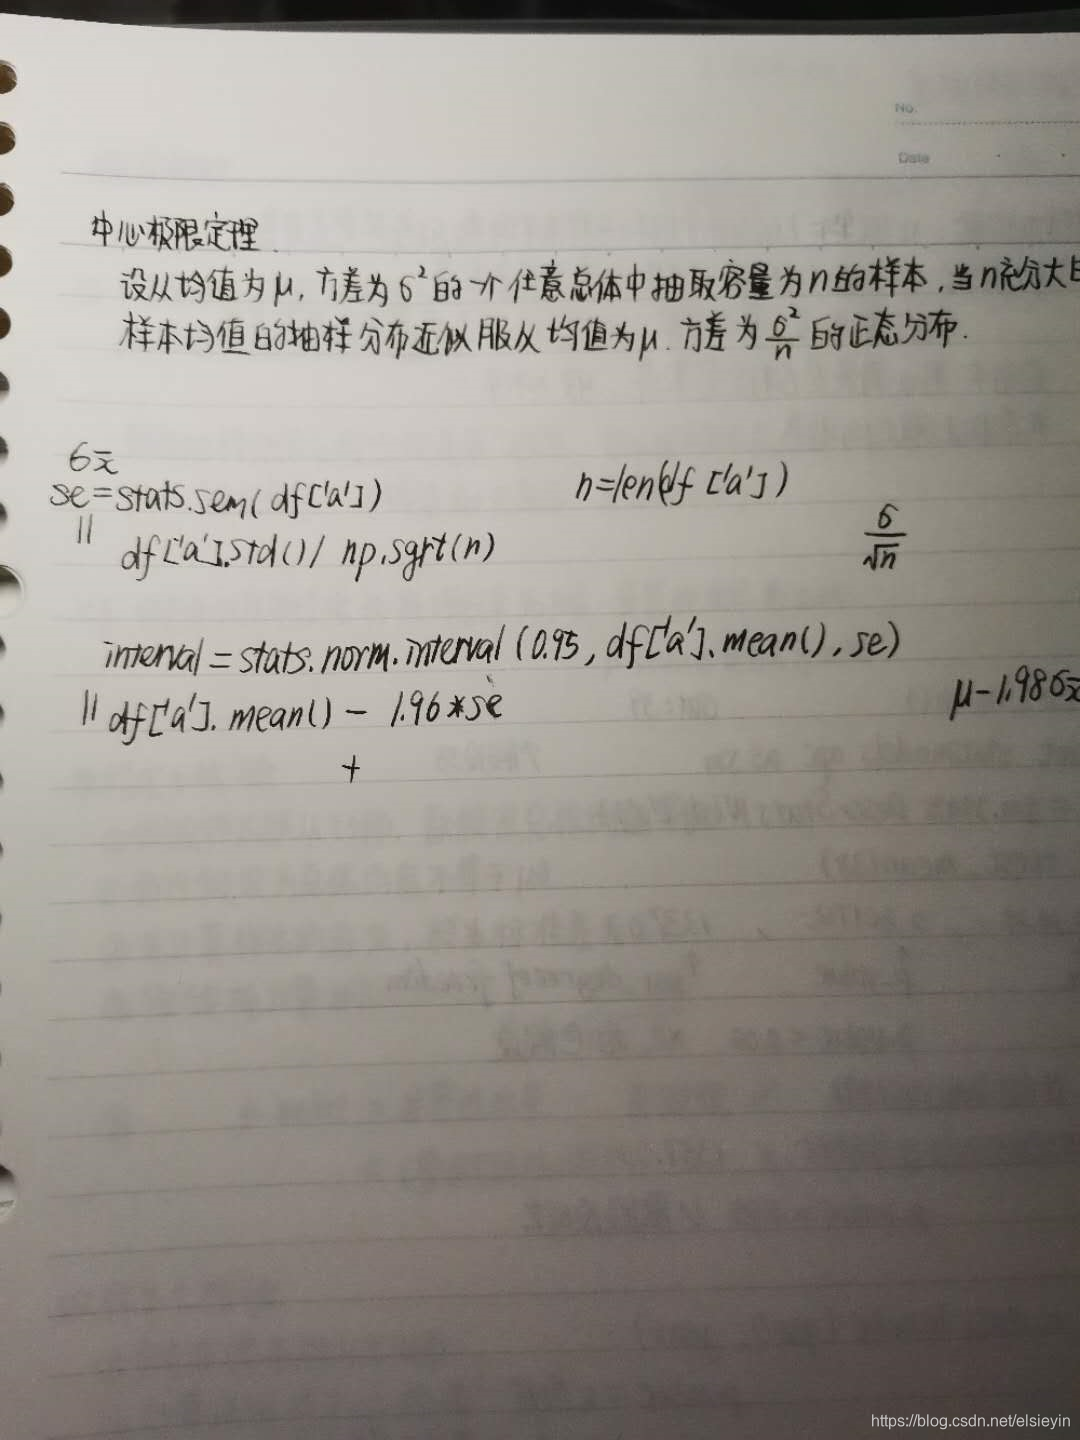 No.
Date
中心极限定理
设从均值为μ,方差为6²的一个任意总体中抽取容量为n的样本,当n充分大时
样本均值的抽样分布近似服从均值为μ.方差为6²/n的正态分布.
6x̄
se=stats.sem(df['a']) n=len(df['a'])
|| df['a'].std()/np.sqrt(n) 6/√n
interval=stats.norm.interval(0.95,df['a'].mean(),se)
|| df['a'].mean()-1.96*se μ-1.986x̄
+
https://blog.csdn.net/elsieyin